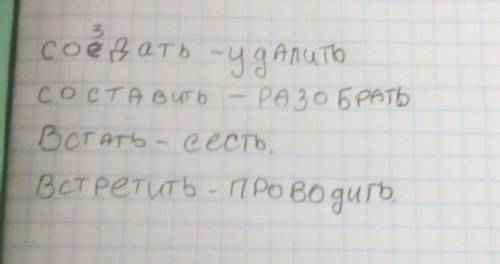 создать - удалить
составить - разобрать
Встать - сесть.
встретить - проводить.